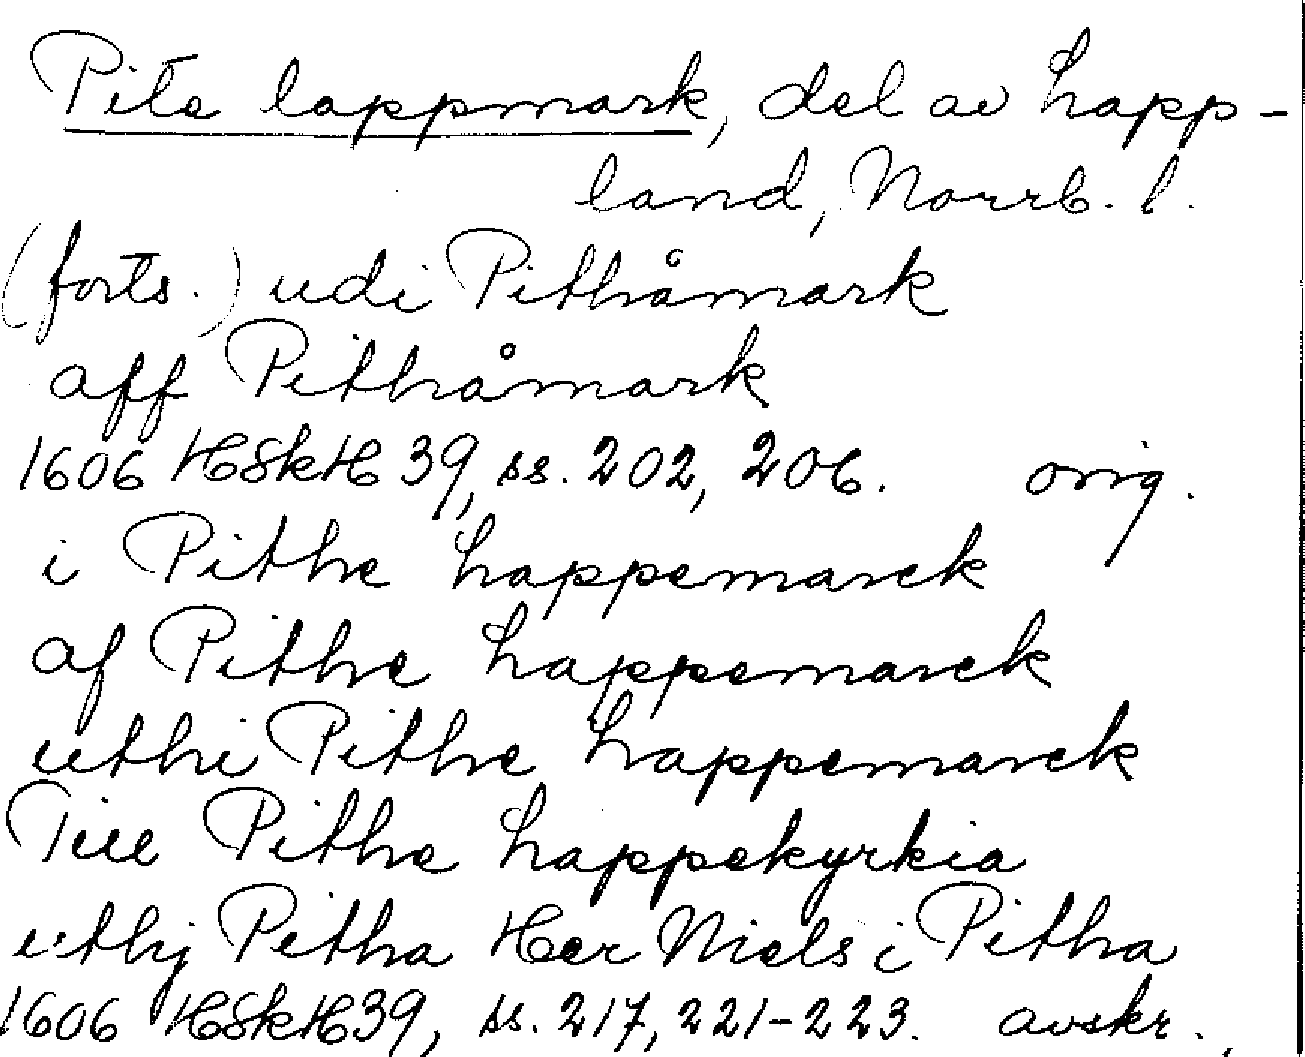 Pite lappmark, del av Lapp-
land, Norrb. l.
(forts.) udi Pithåmark
aff Pithåmark
1606 HSkH 39, ss. 202, 206. orig.
i Pithe Lappemarck
af Pithe Lappemarck
uthi Pithe Lappemarck
Till Pithe Lappekyrkia
uthj Pitha Her Niels i Pitha
1606 HSkH 39, ss. 217, 221-223. avskr.